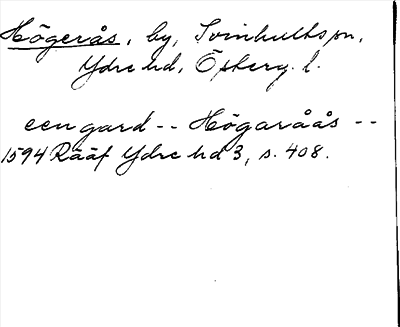 Högerås, by, Svinhults sn,
Ydre hd, Österg. l.
een gard -- Högaråås --
1594 Rääf Ydre hd 3, s. 408.